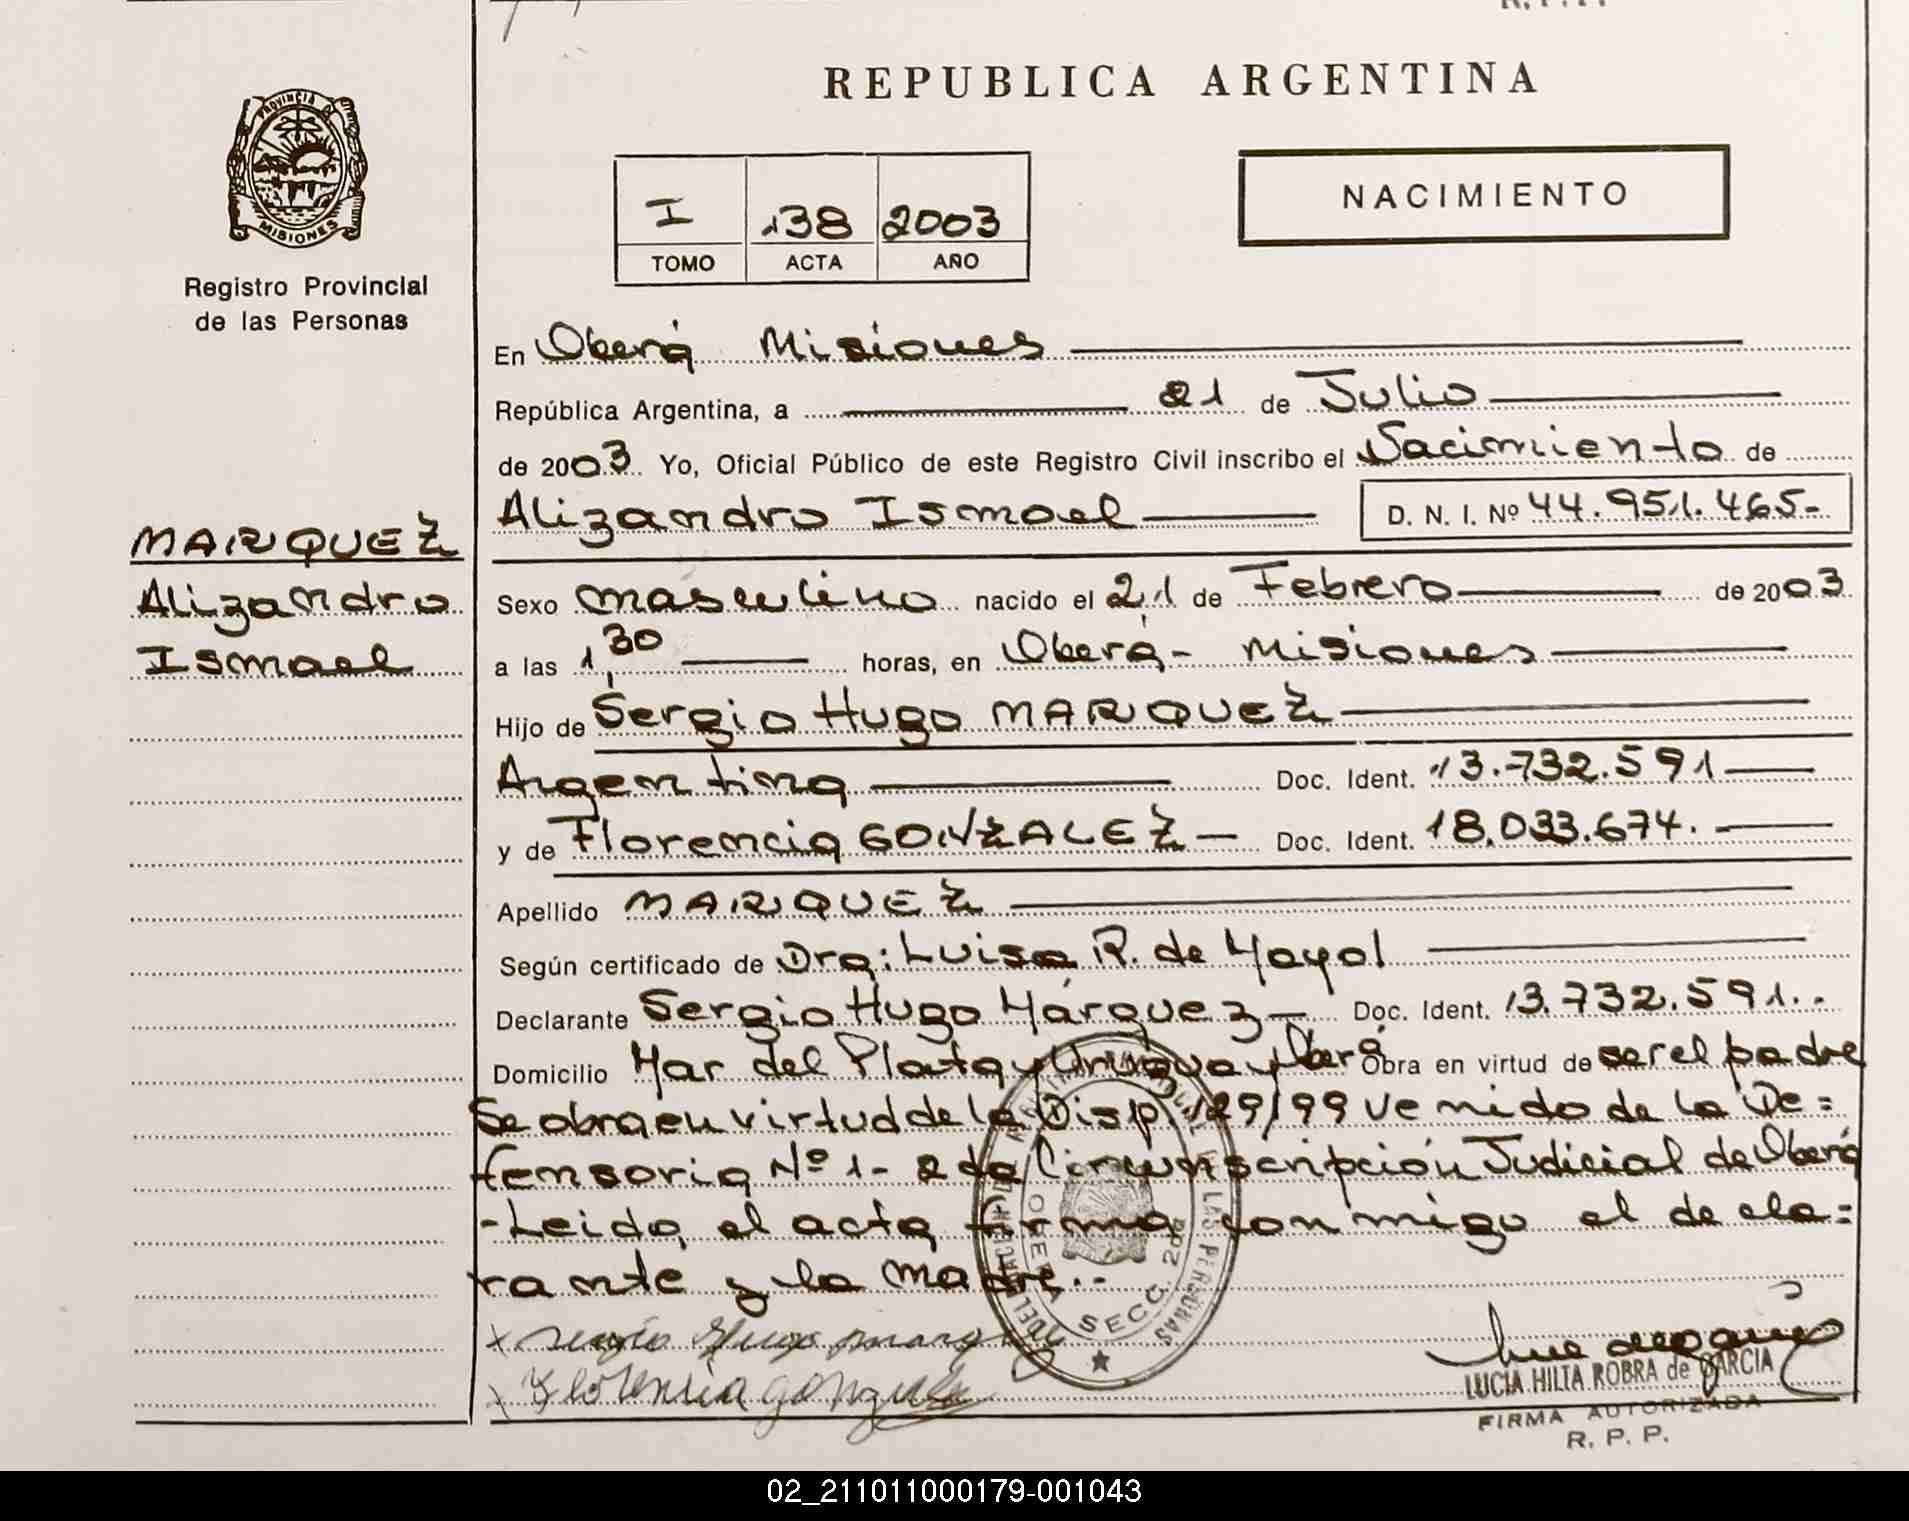 R. P. P.
REPUBLICA ARGENTINA
PROVINCIA D
MISIONES
Registro Provincial
de las Personas
I 138 2003
TOMO ACTA AÑO
NACIMIENTO
En Oberá Misiones
República Argentina, a 21 de Julio
de 2003 Yo, Oficial Público de este Registro Civil inscribo el Nacimiento de
Alizandro Ismael D. N. I. Nº 44.951.465-
MARQUEZ
Alizandro
Ismael
Sexo masculino nacido el 21 de Febrero de 2003
a las 1,30 horas, en Oberá - Misiones
Hijo de Sergio Hugo MARQUEZ
Argentina Doc. Ident. 13.732.591
y de Florencia GONZALEZ Doc. Ident. 18.033.674.
Apellido MARQUEZ
Según certificado de Dra: Luisa R. de Mayol
Declarante Sergio Hugo Márquez Doc. Ident. 13.732.591..
Domicilio Mar del Plata y Uruguay Oberá Obra en virtud de ser el padre
Se obra en virtud de la Disp. 129/99 Venido de la De=
fensoria Nº 1- 2 da Circunscripción Judicial de Oberá
-Leida, el acta firma conmigo el decla=
rante y la madre..
LAS PERSONAS
SECC. 2da
x sergio Hugo marquez
x Florencia gonzalez
LUCIA HILTA ROBRA de GARCIA
FIRMA AUTORIZADA
R. P. P.
02_211011000179-001043